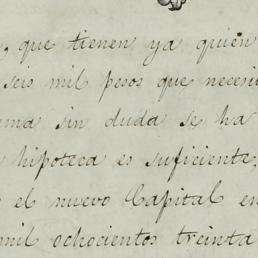 , que tienen ya quien
seis mil pesos que neces
uma sin duda se ha
hipoteca es suficiente.
el nuevo Capital en
mil ochocientos treinta